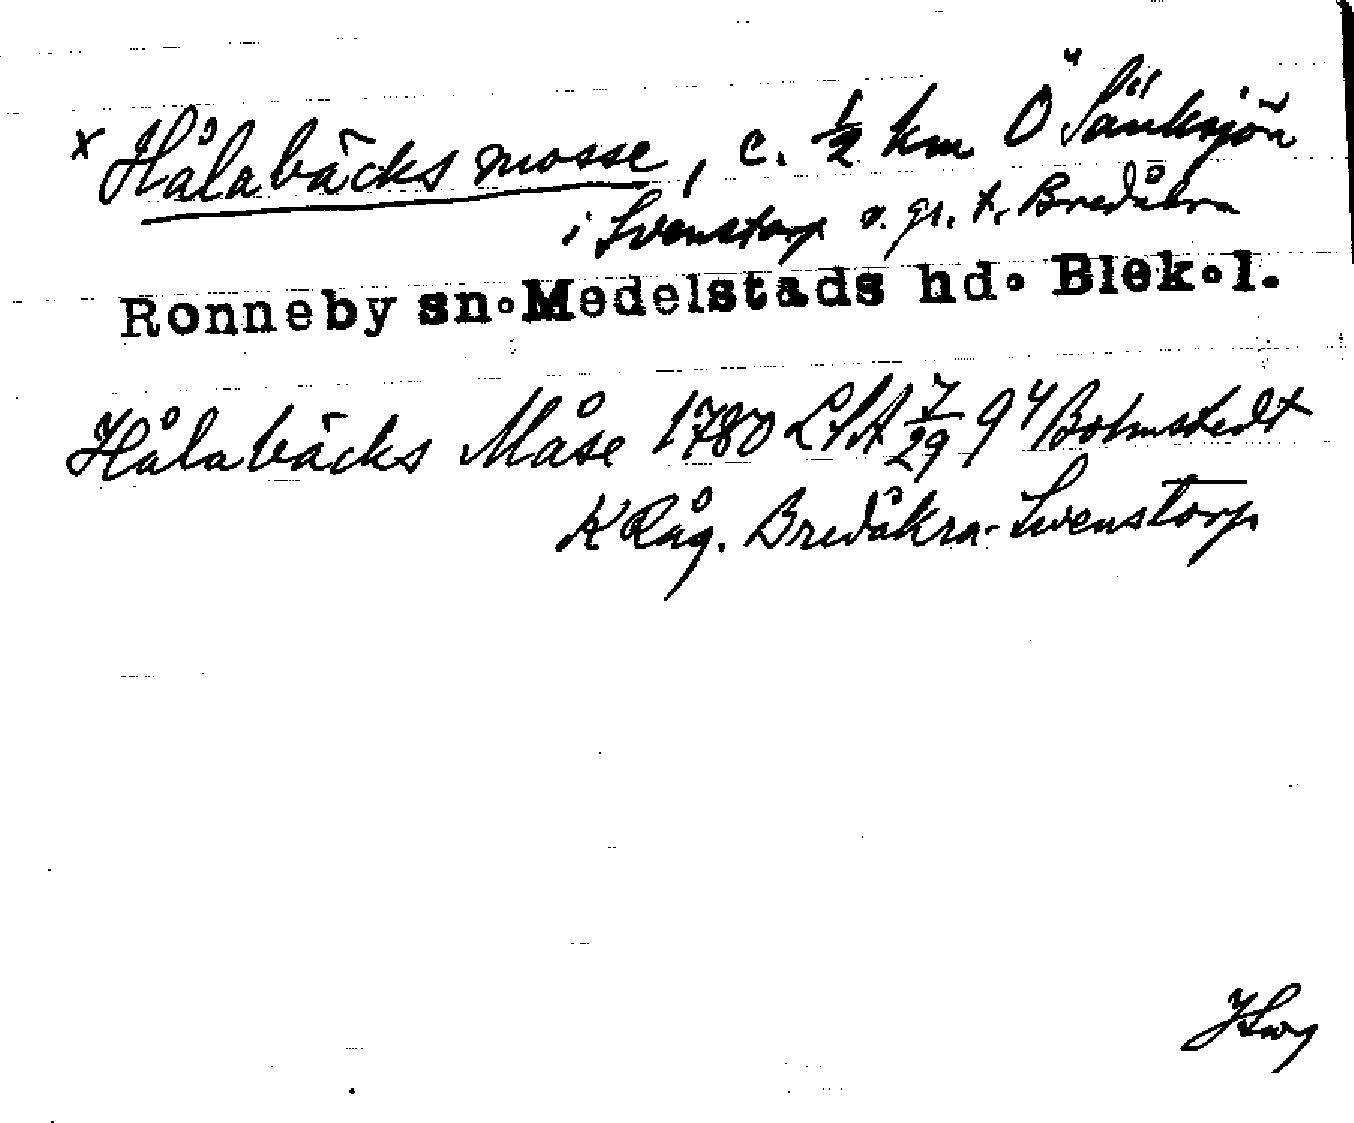 x Hålabäcks mosse, c. ½ km Ö Sänksjön
i Svenstorp v. gr. t. Bredåkra
Ronneby sn. Medelstads hd. Blek. l.
Hålabäcks Måse 1780 LSA 7/29 94 Bohmstedt
K Råg. Bredåkra-Svenstorp